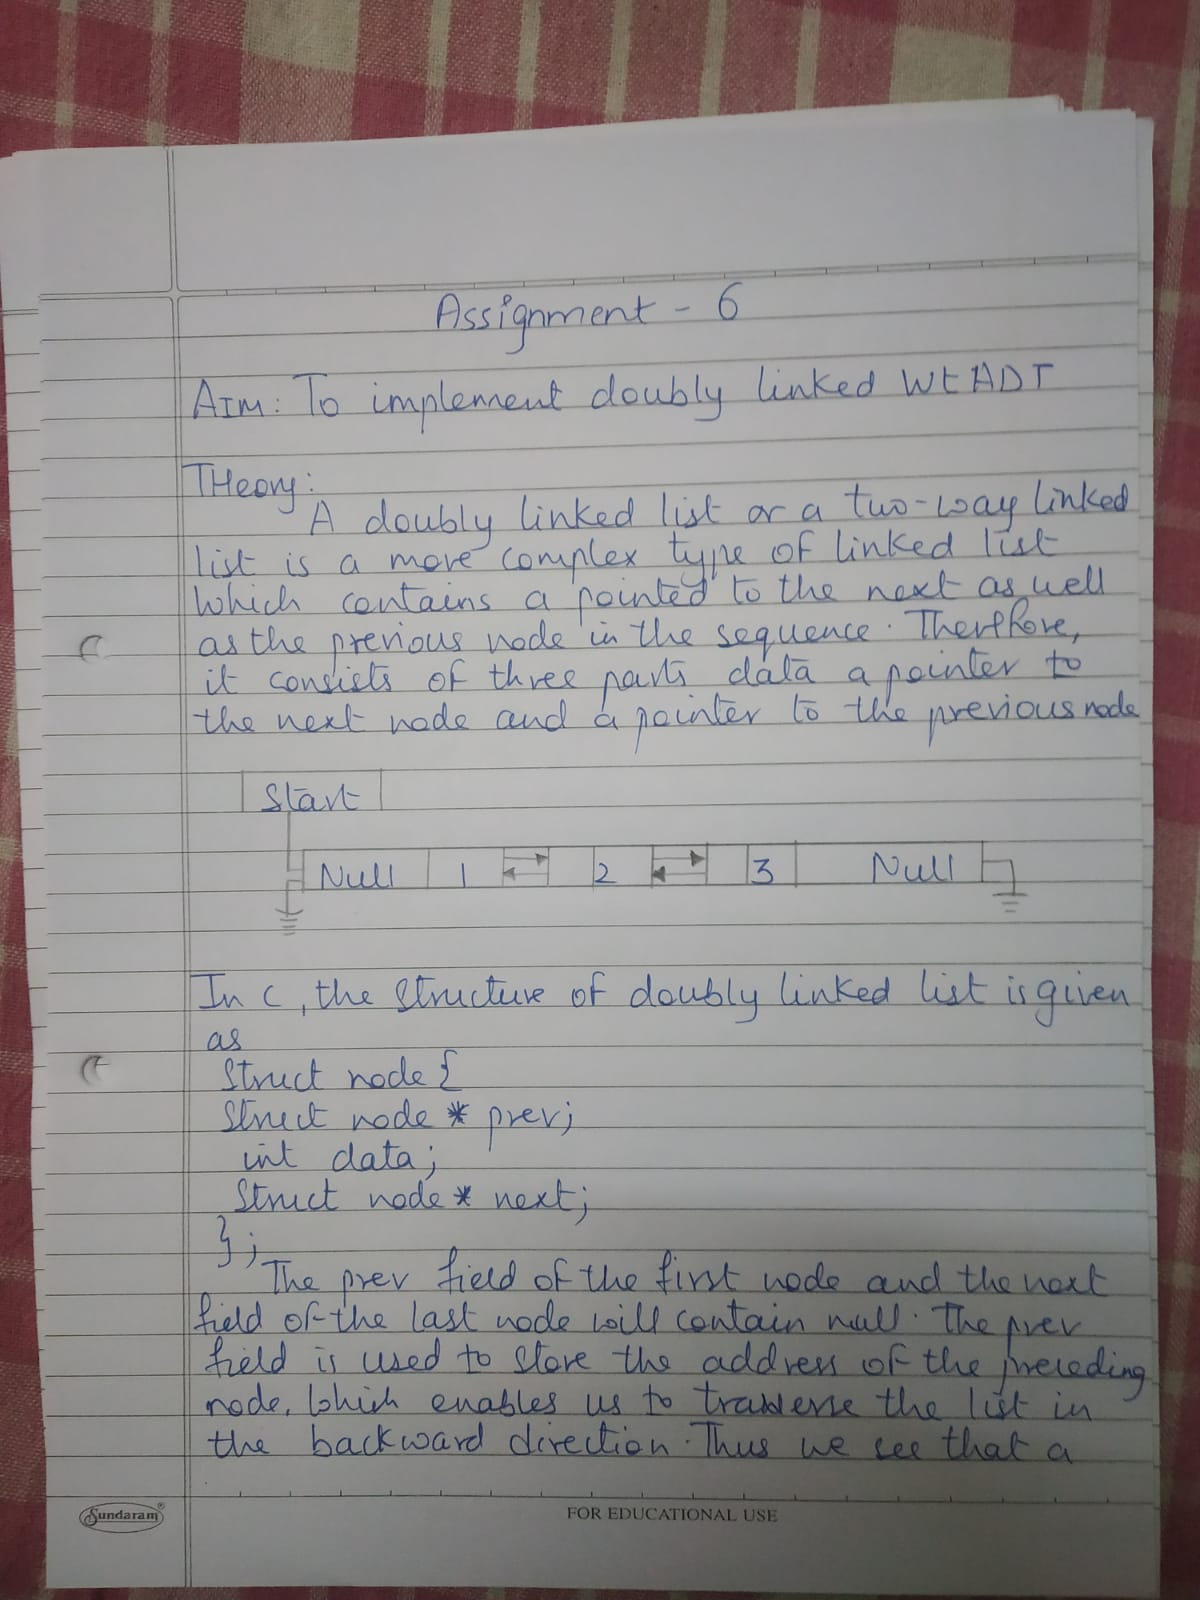 Assignment - 6
AIM: To implement doubly linked list ADT
THeory:
A doubly linked list or a two-way linked
list is a more complex type of linked list
which contains a pointed to the next as well
as the previous node in the sequence. Therefore,
it consists of three parts data a pointer to
the next node and a pointer to the previous node
Start
Null 1 2 3 Null
In C, the structure of doubly linked list is given
as
Struct node {
Struct node * prev;
int data;
Struct node * next;
};
The prev field of the first node and the next
field of the last node will contain null. The prev
field is used to store the address of the preceding
node, which enables us to traverse the list in
the backward direction. Thus we see that a
Sundaram®
FOR EDUCATIONAL USE